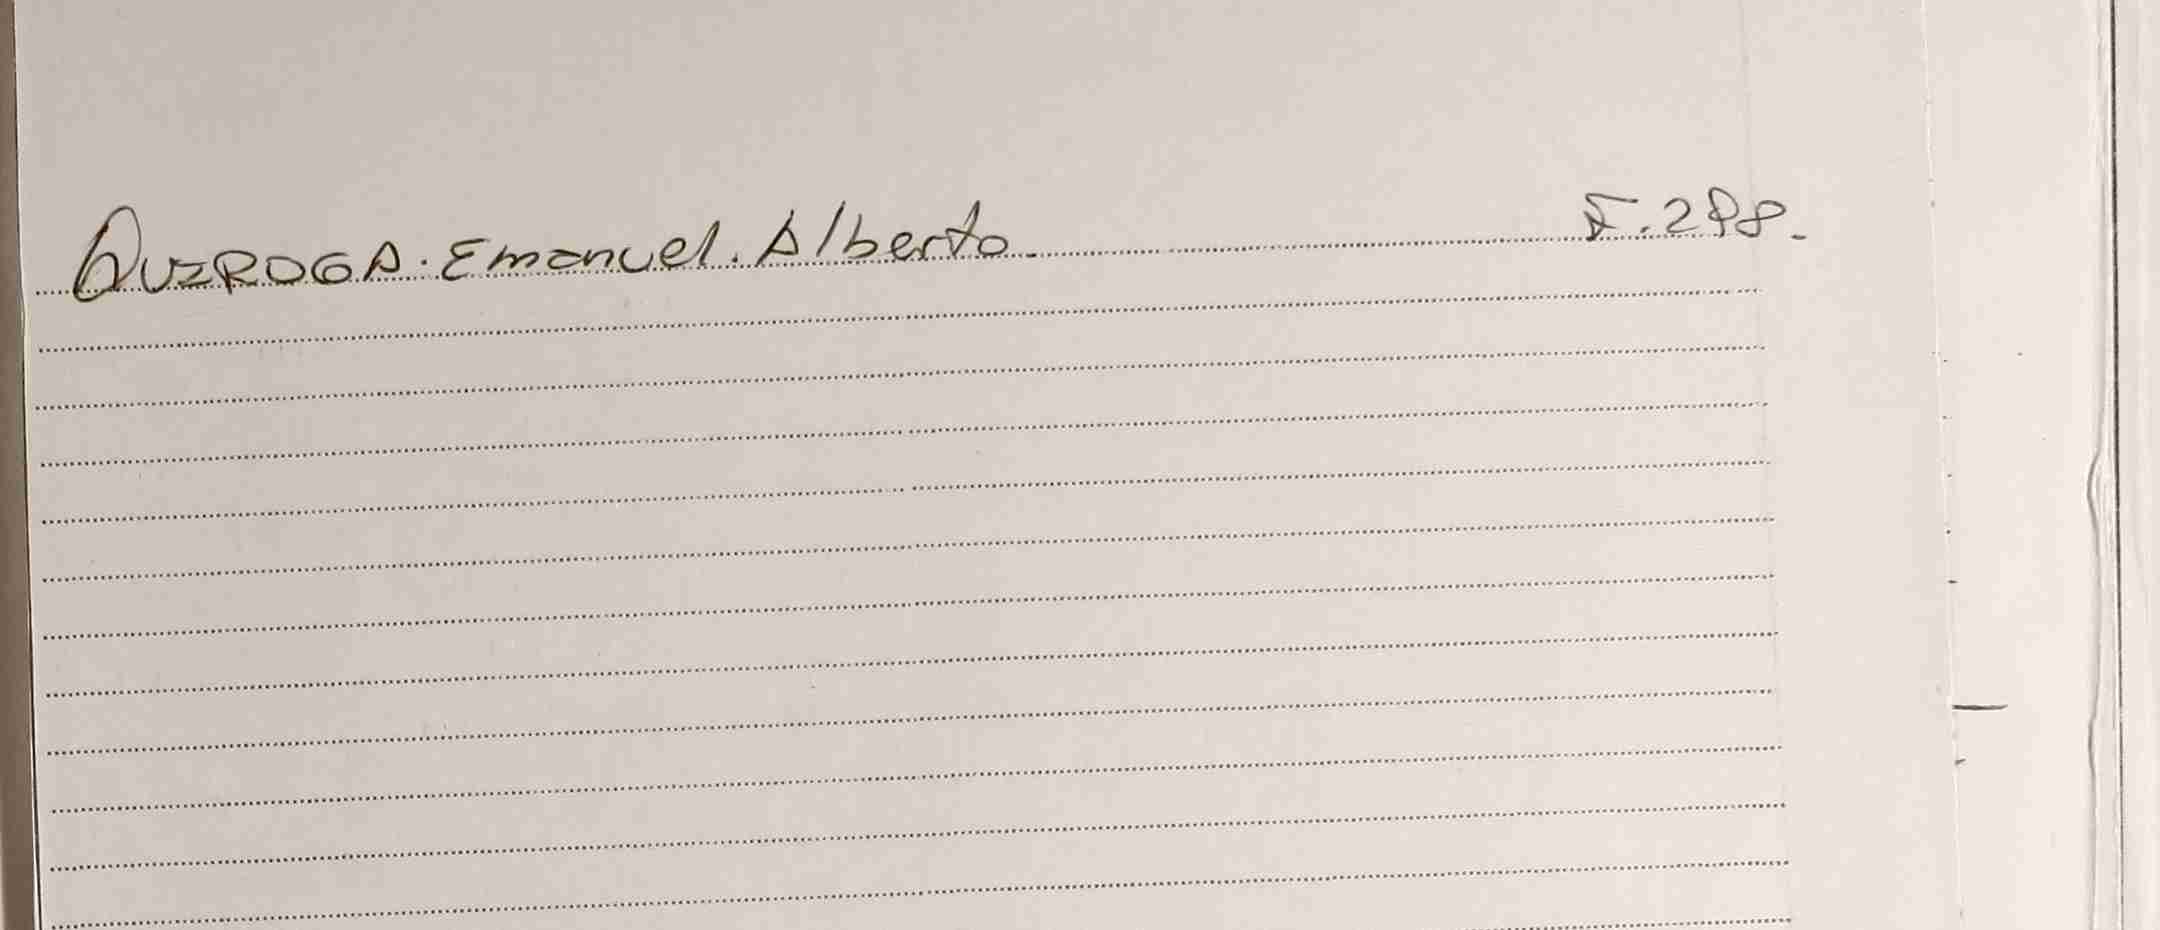 QUIROGA. Emanuel. Alberto. F. 298.